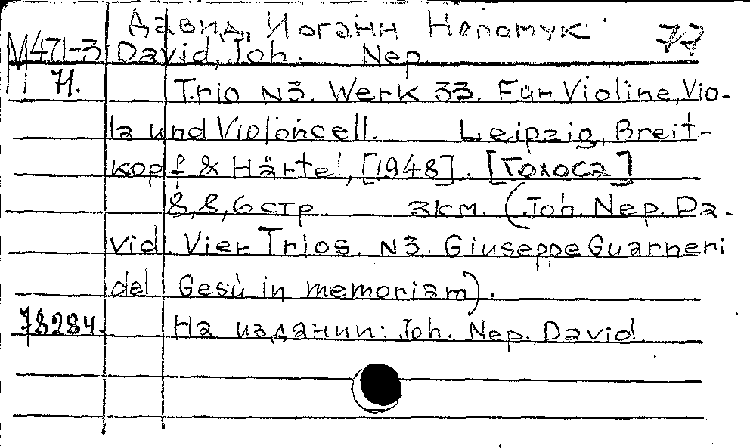 Давид, Иоганн Непомук 77
М471-3 David, Joh. Nep.
71. Trio N3. Werk 33. Für Violine, Vio-
la und Violoncell. Leipzig, Breit-
kopf & Härtel, [1948]. [Голоса]
8,8,6 стр 3км. (Joh. Nep. Da-
vid. Vier Trios. N3. Giuseppe Guarneri
del Gesù in memoriam).
78284. На издании: Joh. Nep. David.